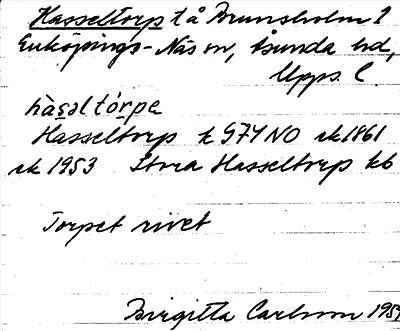 Hasseltorp t å Brunsholm 1
Enköpings-Näs sn, Åsunda hd,
Upps. l.
hàsəltórpe
Hasseltorp k 97Y NO rk 1861
rk 1953 Stora Hasseltorp kb
Torpet rivet
Birgitta Carlsson 1959